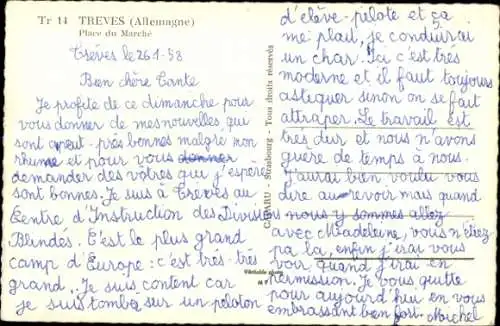 Tr 14 TREVES (Allemagne)
Place du Marché
Trèves le 26 1-58
Bien chère Tante
Je profite de ce dimanche pour
vous donner de mes nouvelles qui
sont très bonnes malgré mon
rhume et pour vous donner
demander des vôtres qui j'espère
sont bonnes. Je suis à Trèves au
Centre d'Instruction des Divisions
Blindés. C'est le plus grand
camp d'Europe : c'est très-très
grand.. Je suis content car
je suis tombé sur un peloton
CAP - Strasbourg - Tous droits réservés
Véritable photo
d'élève-pilote et ça
me plait, je conduirai
un char. Ici c'est très
moderne et il faut toujours
astequer sinon on se fait
attraper. Le travail est
très dur et nous n'avons
guère de temps à nous.
J'aurai bien voulu vous
dire au revoir mais quand
nous y sommes allez
avec Madeleine, vous n'étiez
pa la, enfin j'irai vous
voir quand j'irai en
permission. Je vous quitte
pour aujourd'hui en vous
embrassant bien fort. Michel